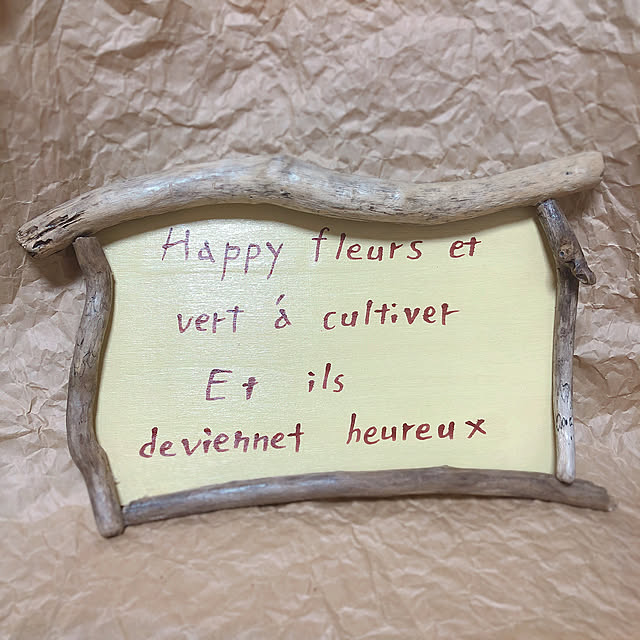 Happy fleurs et
vert á cultiver
Et ils
deviennet heureux